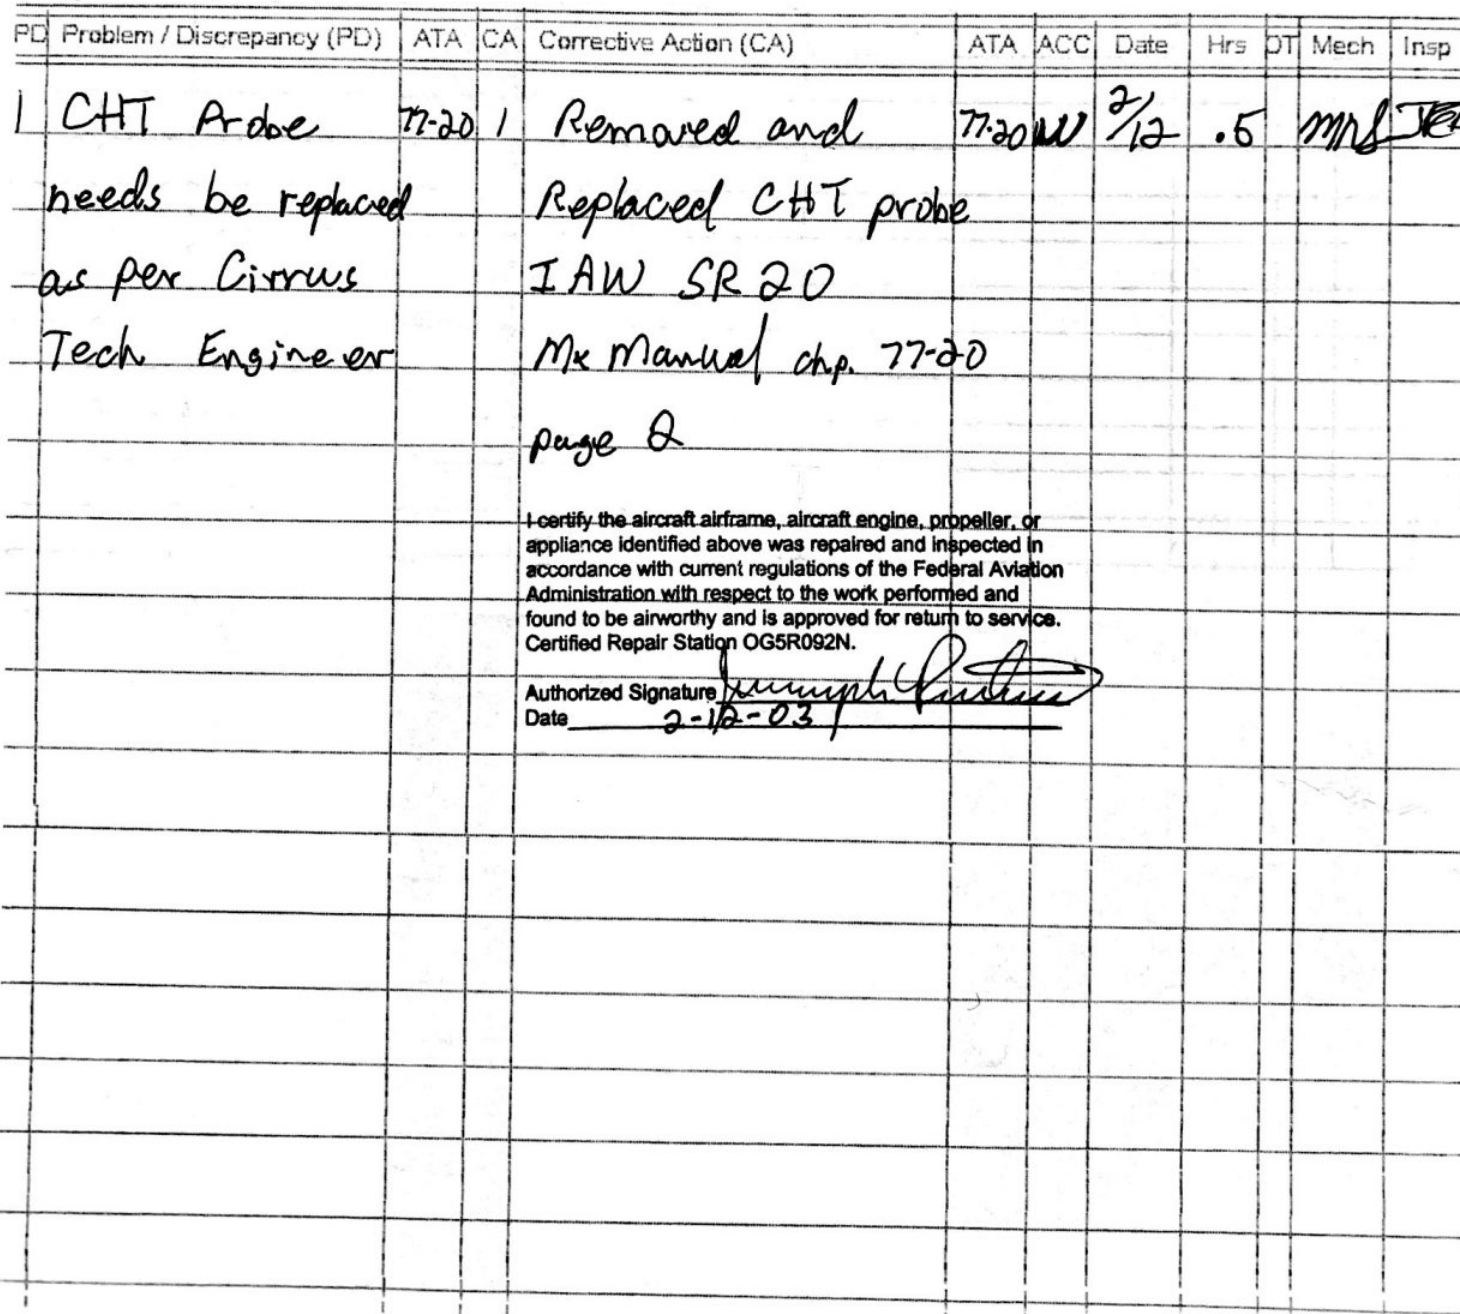 PD Problem / Discrepancy (PD) ATA CA Corrective Action (CA) ATA ACC Date Hrs OT Mech Insp
1 CHT Probe 77-20 1 Removed and 77-20 2/12 .5
needs be replaced Replaced CHT probe
as per Cirrus IAW SR20
Tech Engineer Mx Manual chp. 77-20
page 2
I certify the aircraft airframe, aircraft engine, propeller, or
appliance identified above was repaired and inspected in
accordance with current regulations of the Federal Aviation
Administration with respect to the work performed and
found to be airworthy and is approved for return to service.
Certified Repair Station OG5R092N.
Authorized Signature
Date 2-12-03